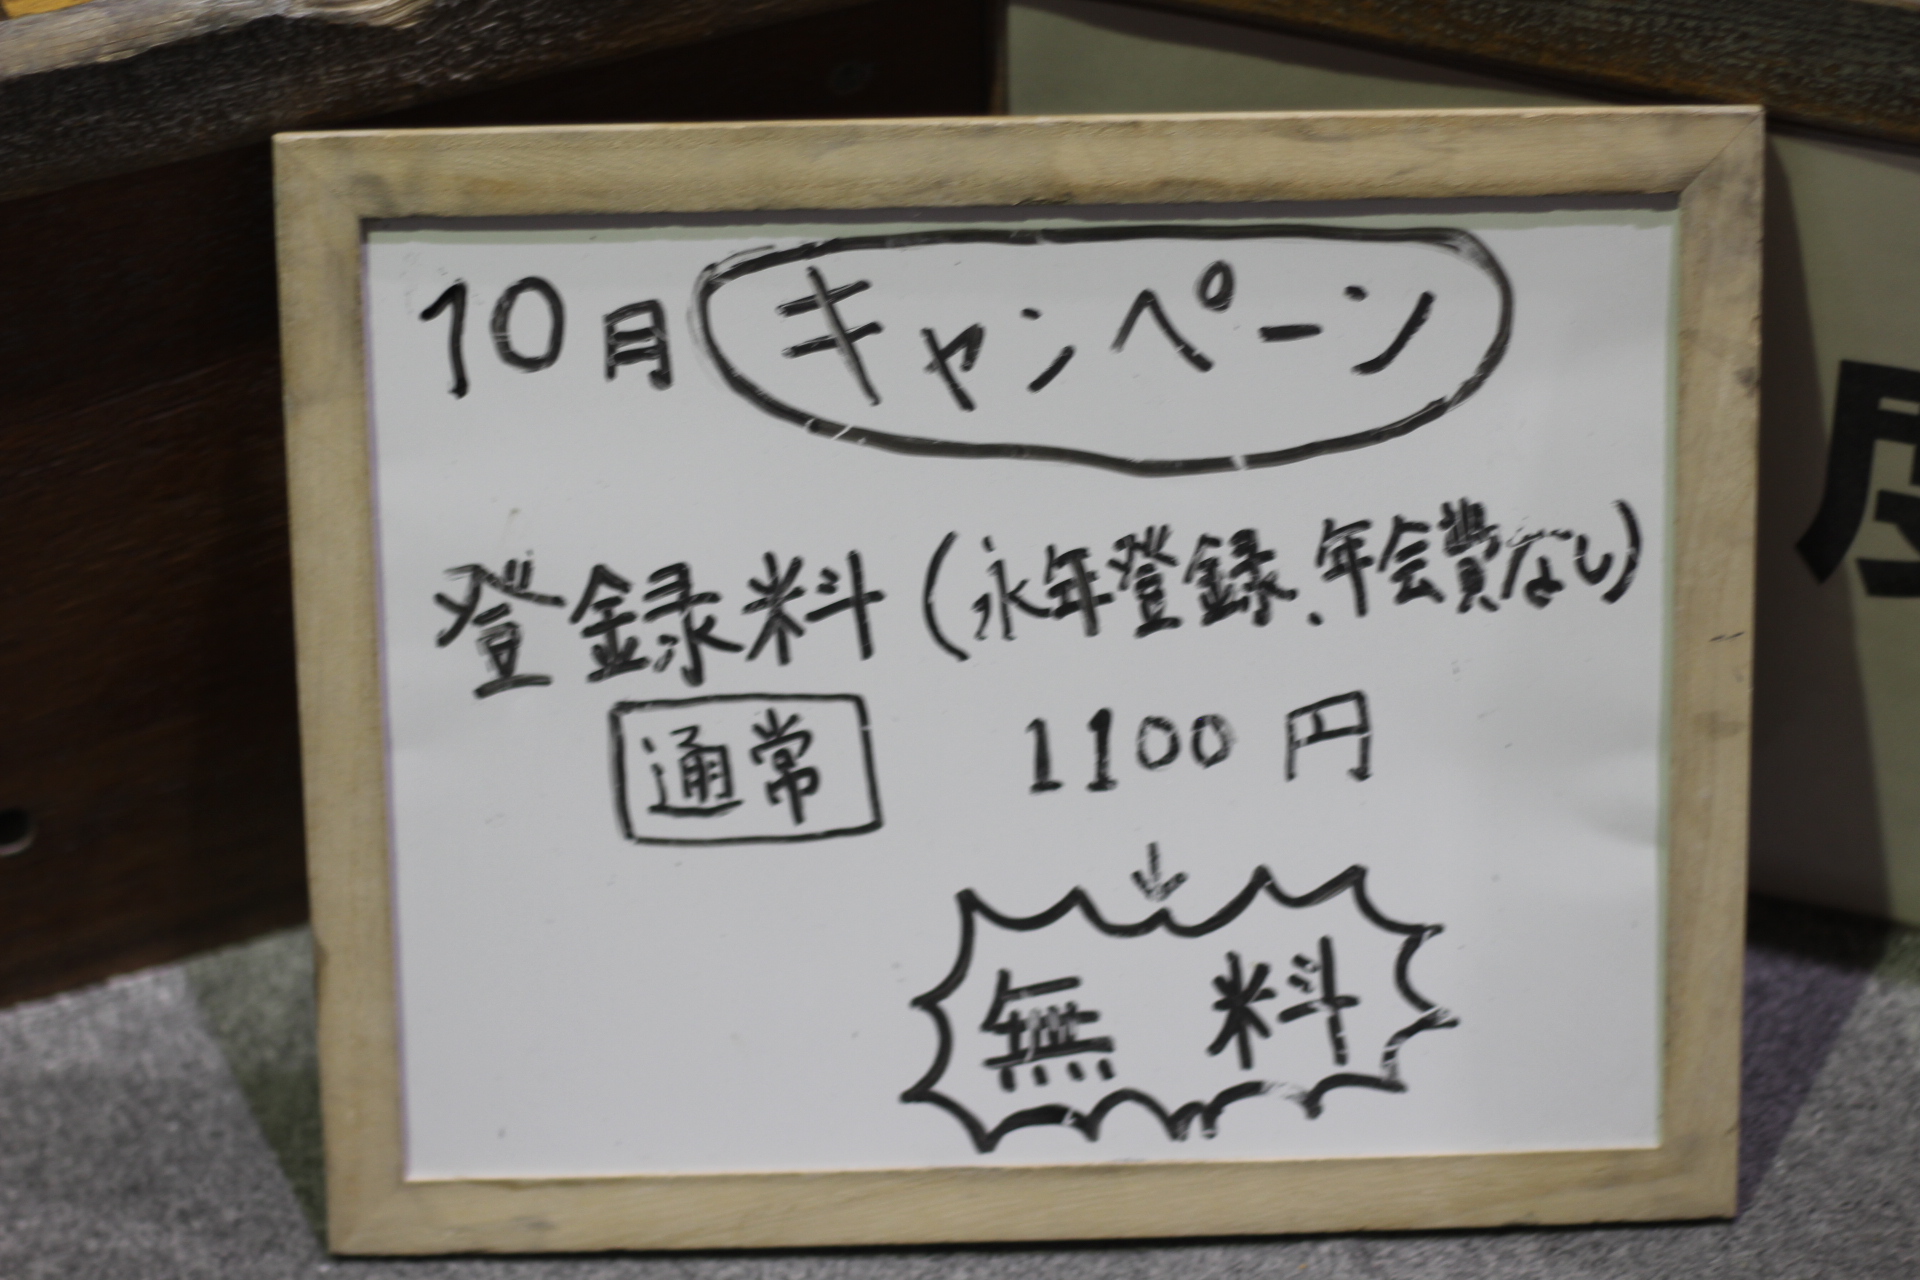 10月 キャンペーン
登録料(永年登録、年会費なし)
通常 1100円
↓
無料
度